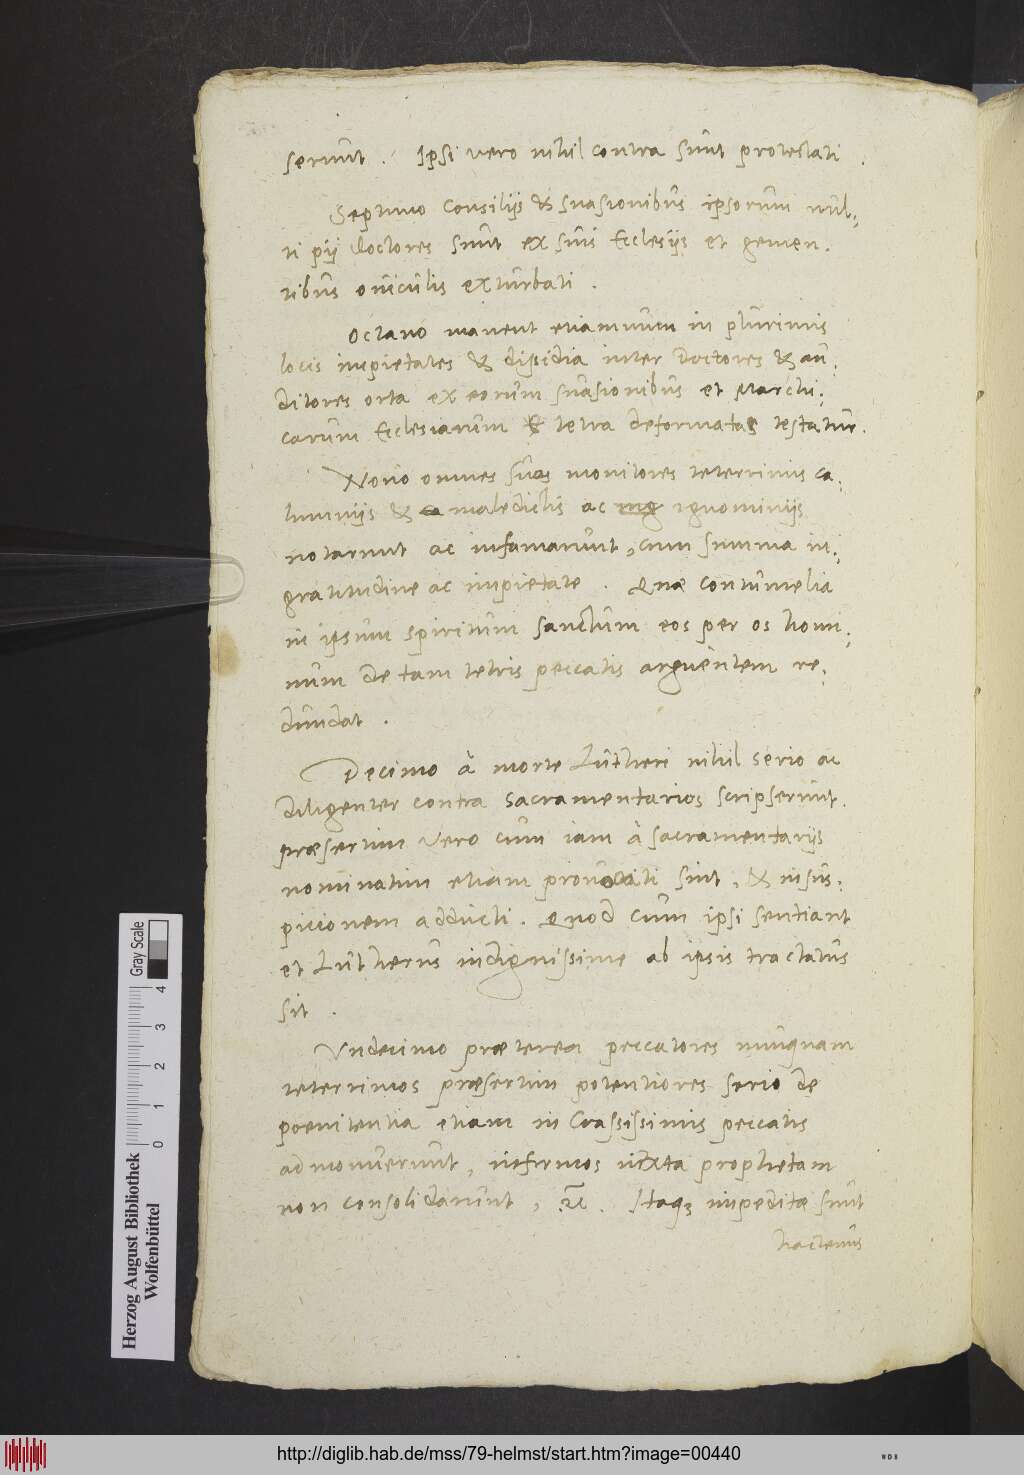 serunt. Ipsi vero nihil contra sunt protestati.
Septimo Consilijs & suasionibus ipsorum mul-
ti pij doctores sunt ex suis Ecclesijs et gemen-
tibus oviculis exturbati.
Octavo manent etiamnum in plurimis
locis impietates & dissidia inter Doctores & au-
ditores orta ex eorum suasionibus et Marchi-
carum Ecclesiarum tetra deformatas testatur.
Nono omnes suos monitores teterrimis ca-
lumnijs & maledictis ac ignominijs
notarunt ac infamarunt, cum summa in-
gratitudine ac impietate. Quae contumelia
in ipsum spiritum sanctum eos per os homi-
num de tam tetris peccatis arguentem re-
dundat.
Decimo à morte Lutheri nihil serio ac
diligenter contra sacramentarios scripserunt.
praesertim vero cum iam à sacramentarijs
nominatim etiam provocati sint, & in sus-
picionem adducti. Quod cum ipsi sentiant
et Lutherus indignissime ab ipsis tractatus
sit.
Undecimo praeterea peccatores nunquam
teterrimos praesertim potentiores serio de
poenitentia etiam in crassissimis peccatis
admonuerunt, infirmos iuxta prophetam
non consolidarunt, &c. Itaq; impeditae sunt
hactenus
Herzog August Bibliothek
Wolfenbüttel
0 1 2 3 4
Gray Scale
http://diglib.hab.de/mss/79-helmst/start.htm?image=00440